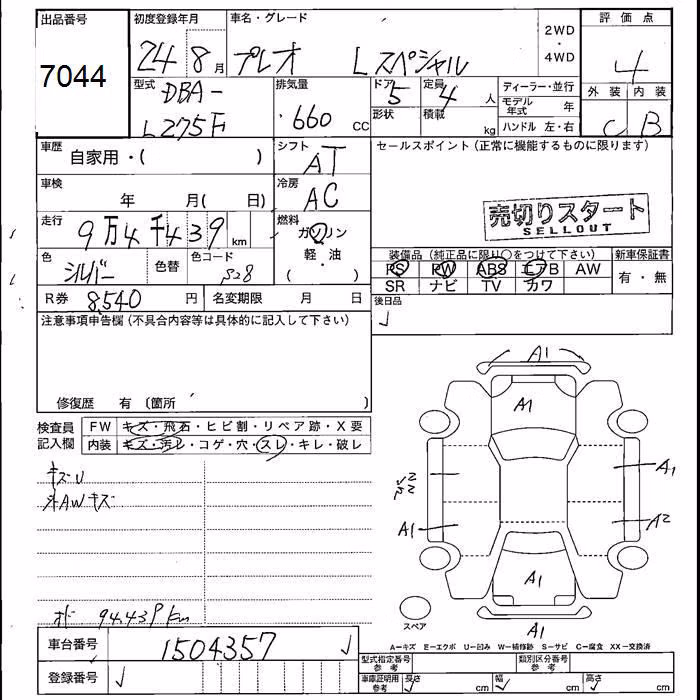 出品番号
7044
初度登録年月
24 8月
車名・グレード
プレオ Lスペシャル
2WD
・
4WD
評価点
4
外装 内装
C B
型式
DBA-
L275F
排気量
660 cc
ドア
5
形状
定員
4 人
積載 kg
ディーラー・並行
モデル年式 年
ハンドル 左・右
車歴 自家用・( )
シフト
AT
セールスポイント(正常に機能するものに限ります)
車検 年 月( 日)
冷房
AC
売切りスタート
SELLOUT
走行
9万4千439 km
燃料
ガソリン
軽・油
( )
色
シルバー
色替
色コード
S28
装備品(純正品に限り○をつけて下さい)
新車保証書
PS PW ABS エアB AW
SR ナビ TV カワ
有・無
R券 8,540 円
名変期限 月 日
後日品
注意事項申告欄(不具合内容等は具体的に記入して下さい)
修復歴 有 (箇所 )
検査員
記入欄
FW キズ・飛石・ヒビ割・リペア跡・X要
内装 キズ・汚レ・コゲ・穴・スレ・キレ・破レ
キズU
外AWキズ
オド 94.439km
A1
A1
A1
A1
A2
A1
A1
スペア
A1
A−キズ E−エクボ U−凹み W−補修跡 S−サビ C−腐食 XX−交換済
車台番号 1504357
登録番号
型式指定番号
参考
類別区分番号
参考
車庫証明用
参考
長さ cm
幅 cm
高さ cm